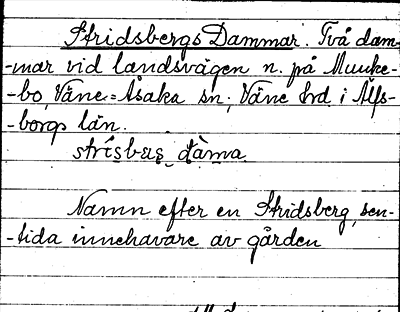 Stridsbergs Dammar. Två dam-
-mar vid landsvägen n. på Munke-
-bo, Väne-Åsaka sn, Väne hrd i Älfs-
-borgs län.
strisbers dàma
Namn efter en Stridsberg, sen-
-tida innehavare av gården